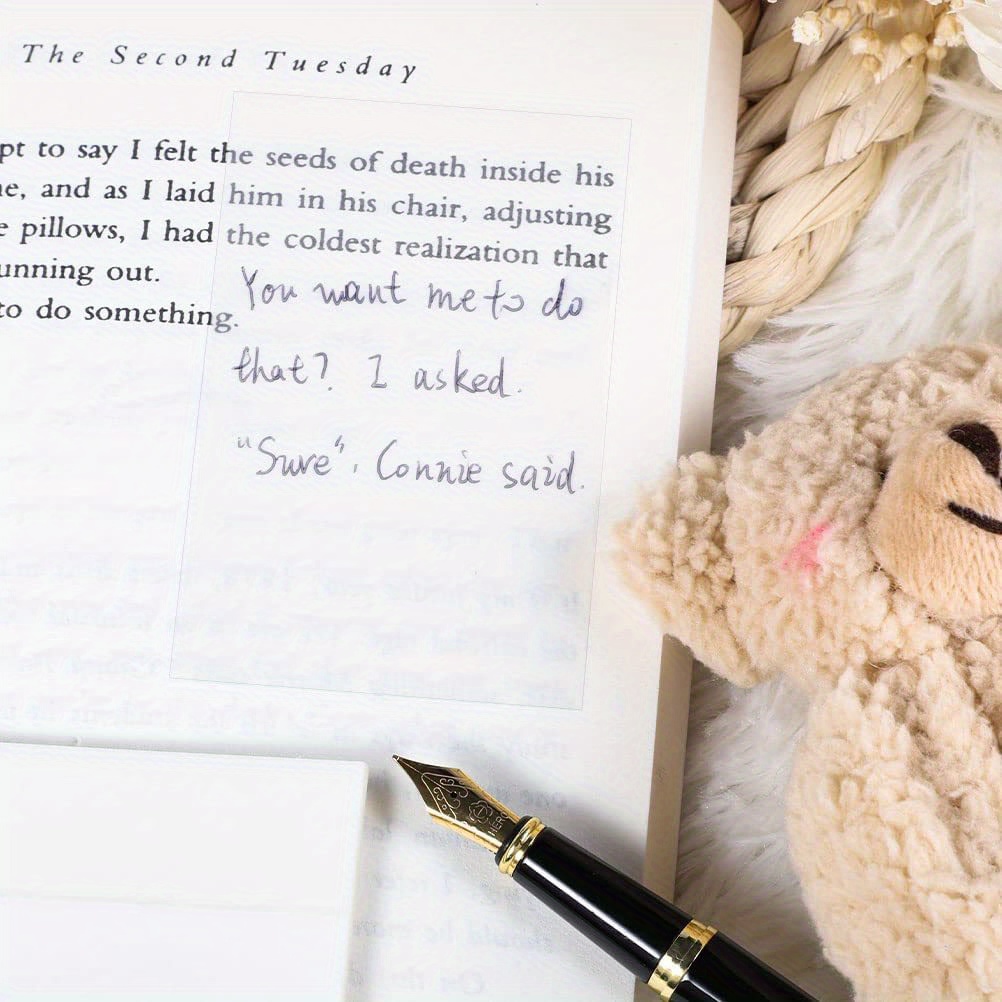 The Second Tuesday
pt to say I felt the seeds of death inside his
e, and as I laid him in his chair, adjusting
e pillows, I had the coldest realization that
unning out.
to do something.
You want me to do
that? I asked.
"Sure". Connie said.
HERO